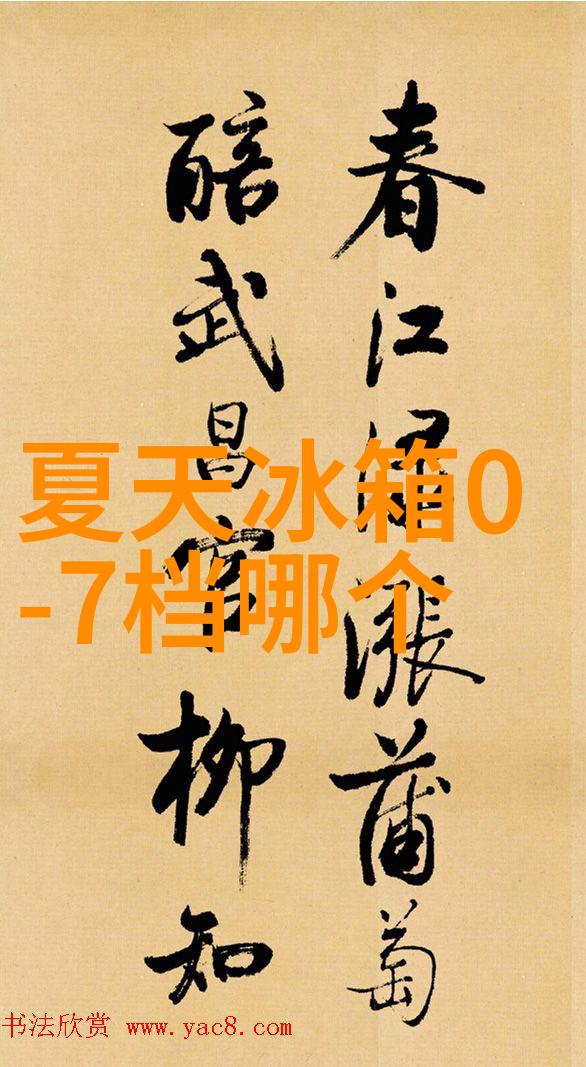 夏天冰箱0
-7档哪个
春江淥漲蒲萄
醅武昌官柳知
书法欣赏 www.yac8.com